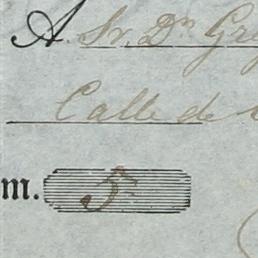 A Sr. Dn Gre
Calle de
m. 5